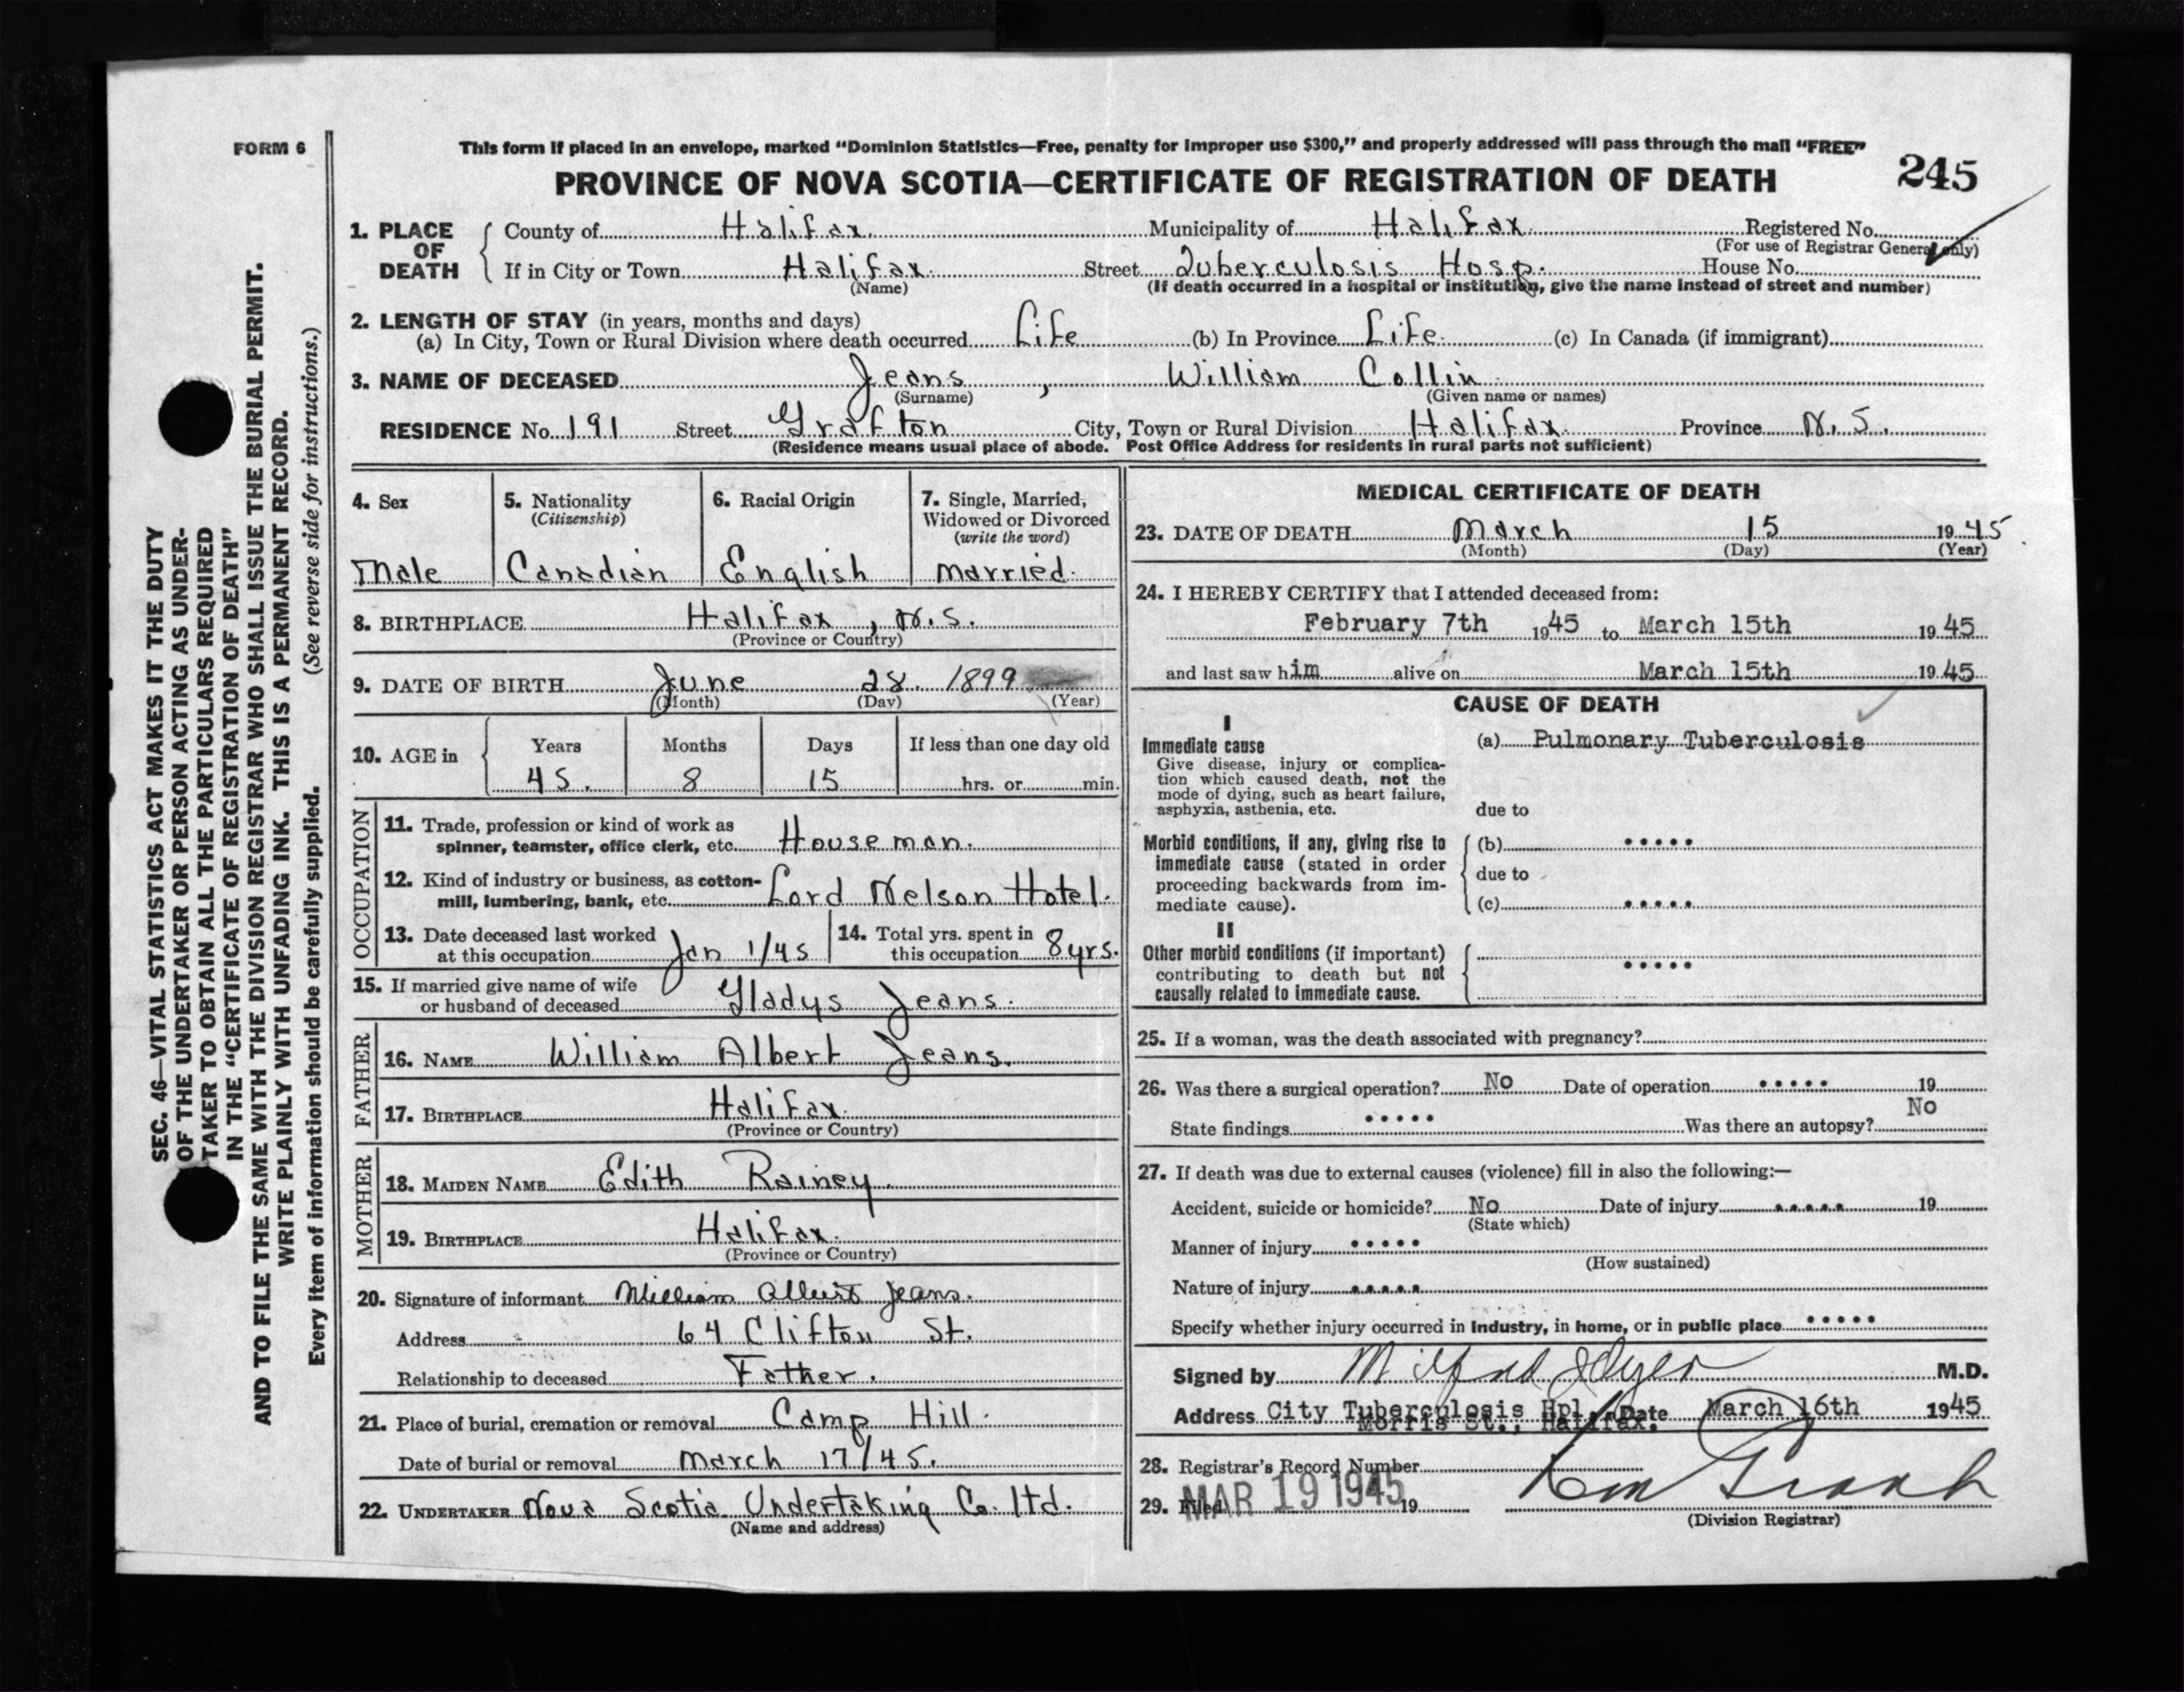 FORM 6
This form if placed in an envelope, marked “Dominion Statistics—Free, penalty for improper use $300,” and properly addressed will pass through the mail “FREE”
PROVINCE OF NOVA SCOTIA—CERTIFICATE OF REGISTRATION OF DEATH
245
1. PLACE OF DEATH
County of Halifax. Municipality of Halifax. Registered No.
(For use of Registrar General only)
If in City or Town Halifax. Street Tuberculosis Hosp. House No.
(Name) (If death occurred in a hospital or institution, give the name instead of street and number)
2. LENGTH OF STAY (in years, months and days)
(a) In City, Town or Rural Division where death occurred Life (b) In Province Life. (c) In Canada (if immigrant)
3. NAME OF DECEASED Jeans, William Collin.
(Surname) (Given name or names)
RESIDENCE No. 191 Street Grafton City, Town or Rural Division Halifax. Province N.S.
(Residence means usual place of abode. Post Office Address for residents in rural parts not sufficient)
4. Sex
Male
5. Nationality
(Citizenship)
Canadian
6. Racial Origin
English
7. Single, Married,
Widowed or Divorced
(write the word)
Married.
8. BIRTHPLACE Halifax, N.S.
(Province or Country)
9. DATE OF BIRTH June 28. 1899
(Month) (Day) (Year)
10. AGE in
Years Months Days If less than one day old
45. 8 15 hrs. or min.
OCCUPATION
11. Trade, profession or kind of work as
spinner, teamster, office clerk, etc. Houseman.
12. Kind of industry or business, as cotton-
mill, lumbering, bank, etc. Lord Nelson Hotel.
13. Date deceased last worked
at this occupation Jan 1/45
14. Total yrs. spent in
this occupation 8 yrs.
15. If married give name of wife
or husband of deceased Gladys Jeans.
FATHER
16. NAME William Albert Jeans.
17. BIRTHPLACE Halifax.
(Province or Country)
MOTHER
18. MAIDEN NAME Edith Rainey.
19. BIRTHPLACE Halifax.
(Province or Country)
20. Signature of informant William Albert Jeans.
Address 64 Clifton St.
Relationship to deceased Father.
21. Place of burial, cremation or removal Camp Hill.
Date of burial or removal March 17/45.
22. UNDERTAKER Nova Scotia Undertaking Co. ltd.
(Name and address)
MEDICAL CERTIFICATE OF DEATH
23. DATE OF DEATH March 15 1945
(Month) (Day) (Year)
24. I HEREBY CERTIFY that I attended deceased from:
February 7th 1945 to March 15th 1945
and last saw him alive on March 15th 1945
CAUSE OF DEATH
I
Immediate cause
Give disease, injury or complica-
tion which caused death, not the
mode of dying, such as heart failure,
asphyxia, asthenia, etc.
(a) Pulmonary Tuberculosis
due to
Morbid conditions, if any, giving rise to
immediate cause (stated in order
proceeding backwards from im-
mediate cause).
(b) .....
due to
(c) .....
II
Other morbid conditions (if important)
contributing to death but not
causally related to immediate cause.
.....
25. If a woman, was the death associated with pregnancy?
26. Was there a surgical operation? No Date of operation ..... 19
State findings ..... Was there an autopsy? No
27. If death was due to external causes (violence) fill in also the following:—
Accident, suicide or homicide? No Date of injury ..... 19
(State which)
Manner of injury .....
(How sustained)
Nature of injury .....
Specify whether injury occurred in industry, in home, or in public place .....
Signed by M.D.
Address City Tuberculosis Hpl. Date March 16th 1945
Morris St., Halifax.
28. Registrar's Record Number
29. Filed MAR 19 1945 19
(Division Registrar)
SEC. 46—VITAL STATISTICS ACT MAKES IT THE DUTY
OF THE UNDERTAKER OR PERSON ACTING AS UNDER-
TAKER TO OBTAIN ALL THE PARTICULARS REQUIRED
IN THE “CERTIFICATE OF REGISTRATION OF DEATH”
AND TO FILE THE SAME WITH THE DIVISION REGISTRAR WHO SHALL ISSUE THE BURIAL PERMIT.
WRITE PLAINLY WITH UNFADING INK. THIS IS A PERMANENT RECORD.
Every item of information should be carefully supplied. (See reverse side for instructions.)